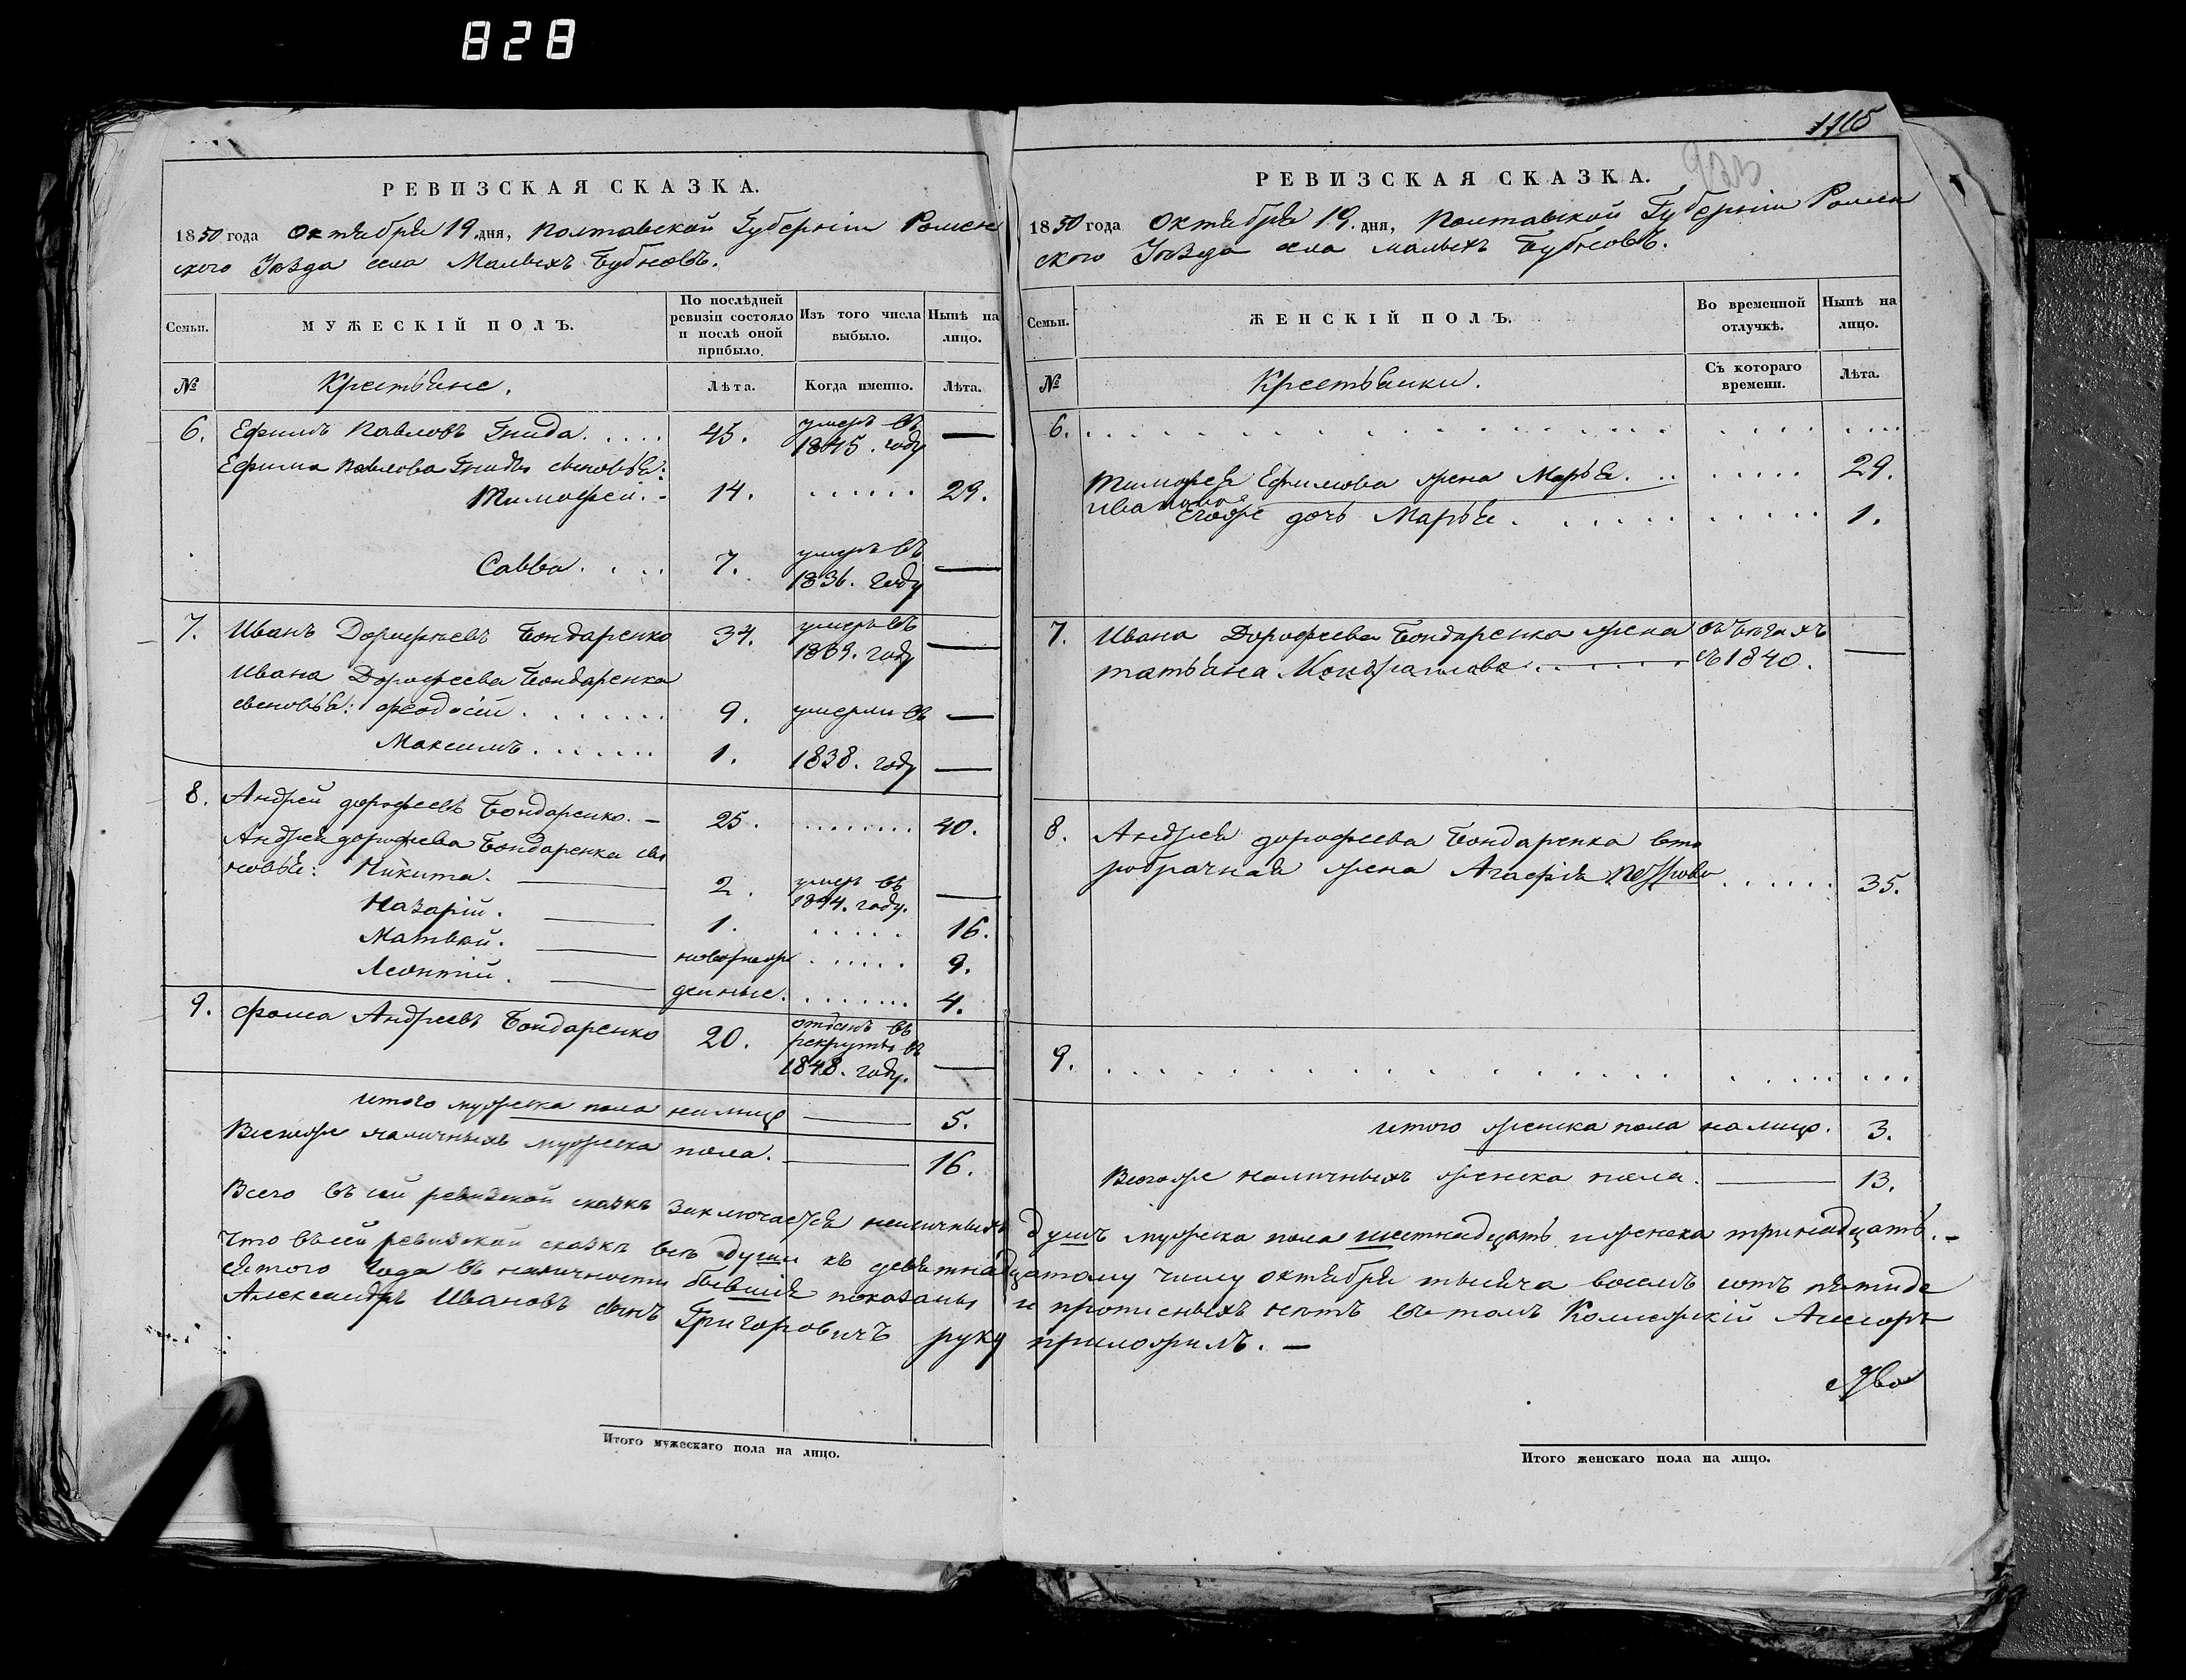 828
РЕВИЗСКАЯ СКАЗКА.
1850 года Октября 19. дня, Полтавской Губерніи Ромен
ского Уѣзда села Малыхъ Бубновъ.
Семьи. МУЖЕСКІЙ ПОЛЪ. По послѣдней ревизіи состояло и послѣ оной прибыло. Изъ того числа выбыло. Нынѣ на лицо.
№ Крестьяне. Лѣта. Когда именно. Лѣта.
6. Ефимъ Павловъ Гнида. . . . . 45. умеръ въ 1845. году —
Ефима Павлова Гниды сыновья:
Тимофей. - 14. . . . . . . 29.
Савва. . . . 7. умеръ въ 1836. году —
7. Иванъ Дорофѣевъ Бондаренко 34. умеръ въ 1839. году —
Ивана Дорофеева Бондаренка
сыновья: Феодосій . . . . . . . 9. умерли въ —
Максимъ. . . . . . 1. 1838. году —
8. Андрей Дорофеевъ Бондаренко. — 25. . . . . . . . . 40.
Андрея Дорофеева Бондаренка сы
новья: Никита. — 2. умеръ въ 1844. году. —
Назарій. — 1. . . . . . 16.
Матвѣй. — новорож . . . . . 9.
Леонтій. — денные. . . . . . . . 4.
9. Фома Андреевъ Бондаренко 20. отданъ въ рекруты въ 1848. году. —
итого мужеска пола налицо — 5.
Всегоже наличныхъ мужеска пола. — 16.
Всего въ сей ревизской сказкѣ заключается наличныхъ
что въ сей ревизской сказкѣ всѣ души къ девятнад
сятого года въ наличности бывшія показаны
Александръ Ивановъ сынъ Григоровичъ руку
Итого мужескаго пола на лицо.
1165
933
РЕВИЗСКАЯ СКАЗКА.
1850 года Октября 19. дня, Полтавской Губерніи Ромен
ского Уѣзда села Малыхъ Бубновъ.
Семьи. ЖЕНСКІЙ ПОЛЪ. Во временной отлучкѣ. Нынѣ на лицо.
№ Крестьянки. Съ котораго времени. Лѣта.
6. . . . . . . . . . . . . . . . . . . . . . . .
Тимофея Ефимова жена Марья. . . . . . . . 29.
Ивановна
Егоже дочь Марья . . . . . . . . . . . . 1.
7. Ивана Дорофеева Бондаренка жена въ бѣгахъ
Татьяна Кондратова . — съ 1840. —
8. Андрея Дорофеева Бондаренка вто
робрачная жена Агафія Петрова . . . . . . 35.
9. . . . . . . . . . . . . . . . . . . . . . . .
итого женска пола налицо. 3.
Всегоже наличныхъ женска пола. — 13.
душъ мужеска пола шестнадцать и женска тринадцать. —
цатому числу октября тысяча восемъ сотъ пятиде
и прописныхъ нѣтъ въ томъ Коллежскій Асесоръ
приложилъ. —
Итого женскаго пола на лицо.